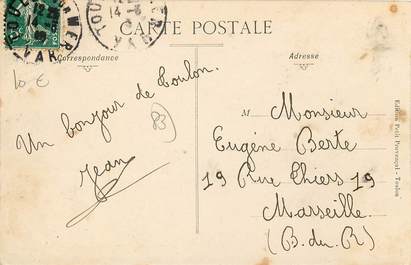 CARTE POSTALE
Correspondance
Adresse
10 €
Un bonjour de Toulon.
Jean
83
M Monsieur
Eugène Berte
19 Rue Thiers 19
Marseille.
(B. du. R)
Edition Petit Provençal - Toulon